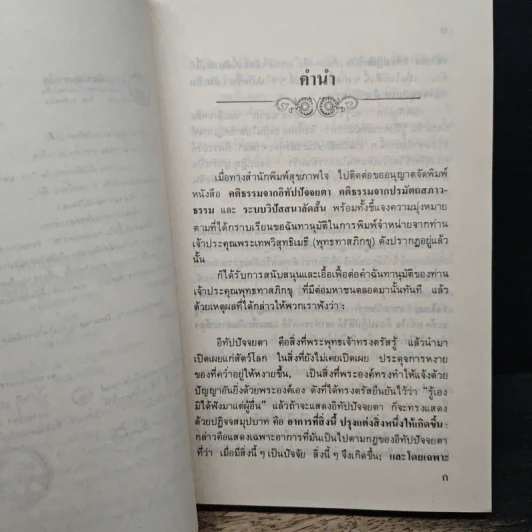 คำนำ
เมื่อทางสำนักพิมพ์สุขภาพใจ ไปติดต่อขออนุญาตจัดพิมพ์
หนังสือ คติธรรมจากอิทัปปัจจยตา คติธรรมจากปรมัตถสภาว-
ธรรม และ ระบบวิปัสสนาลัดสั้น พร้อมทั้งชี้แจงความมุ่งหมาย
ตามที่ได้กราบเรียนขอฉันทานุมัติในการพิมพ์จำหน่ายจากท่าน
เจ้าประคุณพระเทพวิสุทธิเมธี (พุทธทาสภิกขุ) ดังปรากฏอยู่แล้ว
นั้น
ก็ได้รับการสนับสนุนและเอื้อเฟื้อต่อคำฉันทานุมัติของท่าน
เจ้าประคุณพุทธทาสภิกขุ ที่มีต่อมหาชนตลอดมานั้นทันที แล้ว
ด้วยเหตุผลที่ได้กล่าวให้พวกเราฟังว่า:
อิทัปปัจจยตา คือสิ่งที่พระพุทธเจ้าทรงตรัสรู้ แล้วนำมา
เปิดเผยแก่สัตว์โลก ในสิ่งที่ยังไม่เคยเปิดเผย ประดุจการหงาย
ของที่คว่ำอยู่ให้หงายขึ้น, เป็นสิ่งที่พระองค์ทรงทำให้แจ้งด้วย
ปัญญาอันยิ่งด้วยพระองค์เอง ดังที่ได้ทรงตรัสยืนยันไว้ว่า "รู้เอง
มิได้ฟังมาแต่ผู้อื่น" แล้วถ้าจะแสดงอิทัปปัจจยตา ก็จะทรงแสดง
ด้วยปฏิจจสมุปบาท คือ อาการที่สิ่งนี้ ปรุงแต่งสิ่งหนึ่งให้เกิดขึ้น;
กล่าวคือแสดงเฉพาะอาการที่มันเป็นไปตามกฎของอิทัปปัจจยตา
ที่ว่า เมื่อมีสิ่งนี้ ๆ เป็นปัจจัย สิ่งนี้ ๆ จึงเกิดขึ้น; และโดยเฉพาะ
ก